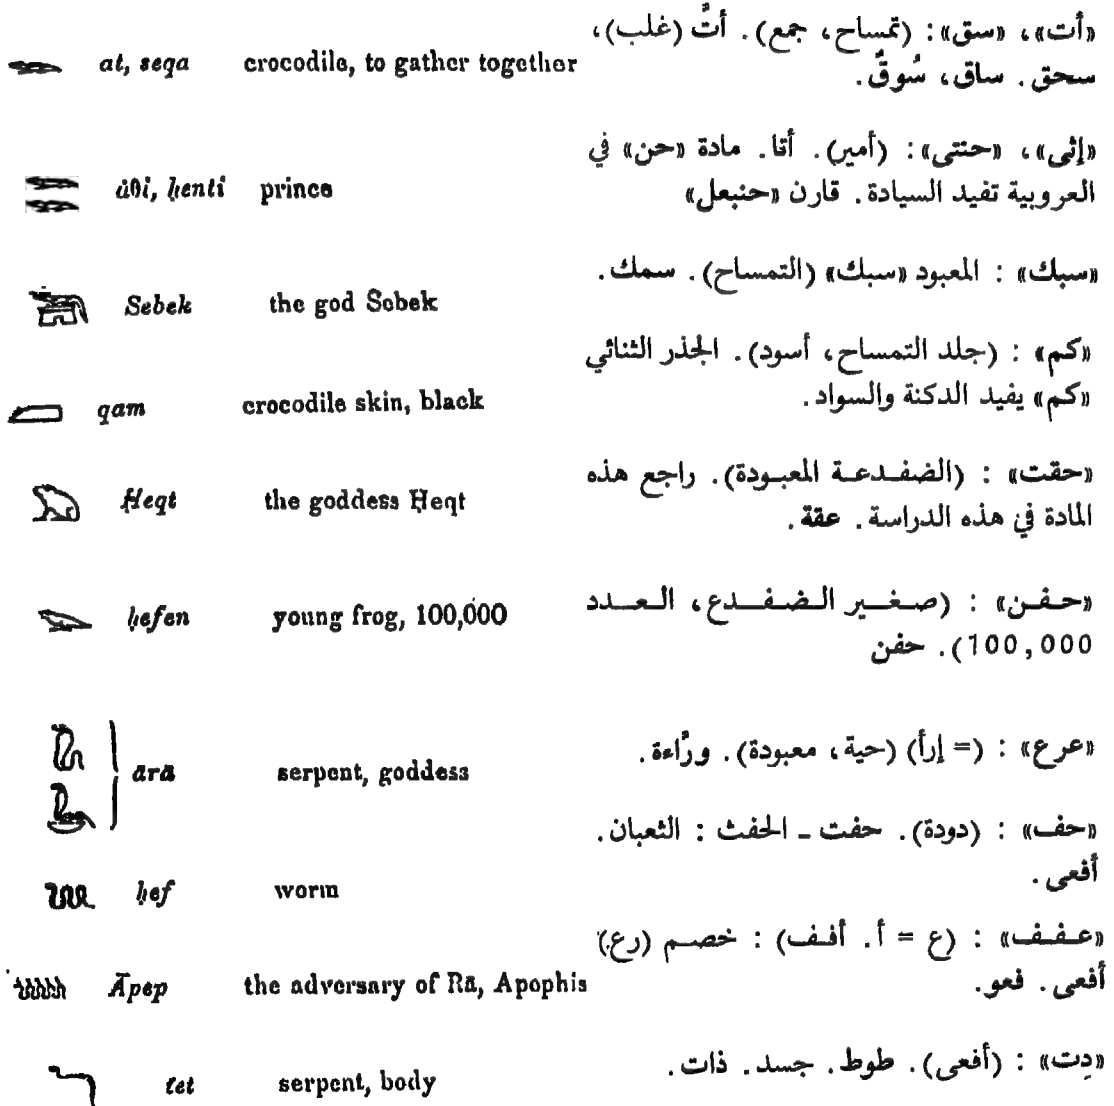 at, seqa crocodile, to gather together
«أت»، «سق»: (تمساح، جمع). أتَّ (غلب)،
سحق. ساق، سُوقٌ.
ȧθi, ḥenti prince
«إثى»، «حنتى»: (أمير). أتا. مادة «حن» في
العروبية تفيد السيادة. قارن «حنبعل»
Sebek the god Sebek
«سبك» : المعبود «سبك» (التمساح). سمك.
qam crocodile skin, black
«كم» : (جلد التمساح، أسود). الجذر الثنائي
«كم» يفيد الدكنة والسواد.
Ḥeqt the goddess Ḥeqt
«حقت» : (الضفدعة المعبودة). راجع هذه
المادة في هذه الدراسة. عقة.
ḥefen young frog, 100,000
«حفن» : (صغير الضفدع، العدد
100,000). حفن
ārā serpent, goddess
«عرع» : (= إرأ) (حية، معبودة). ورَّاءة.
ḥef worm
«حف» : (دودة). حفت - الحفث : الثعبان.
أفعى.
Āpep the adversary of Rā, Apophis
«عفف» : (ع = أ. أفف) : خصم (رع)
أفعى. فعو.
tet serpent, body
«دِت» : (أفعى). طوط. جسد. ذات.